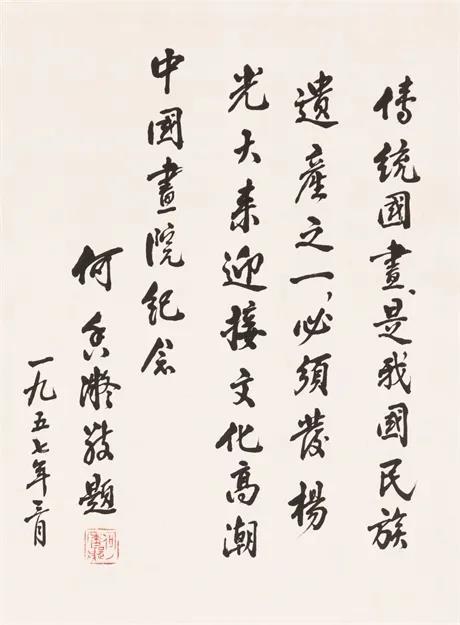 傳統國畫,是我國民族
遺產之一,必須發楊
光大来迎接文化高潮
中國畫院紀念
何香凝敬題
一九五七年三月